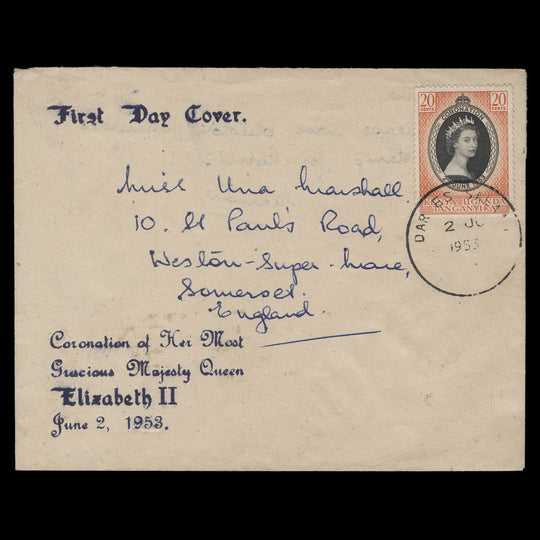 First Day Cover.
20 CENTS 20 CENTS
CORONATION
2 JUNE 1953
KENYA UGANDA
TANGANYIKA
DAR ES SALAAM
2 JU
1953
Miss Una Marshall
10. St Paul's Road,
Weston-Super-Mare,
Somerset.
England.
Coronation of Her Most
Gracious Majesty Queen
Elizabeth II
June 2, 1953.